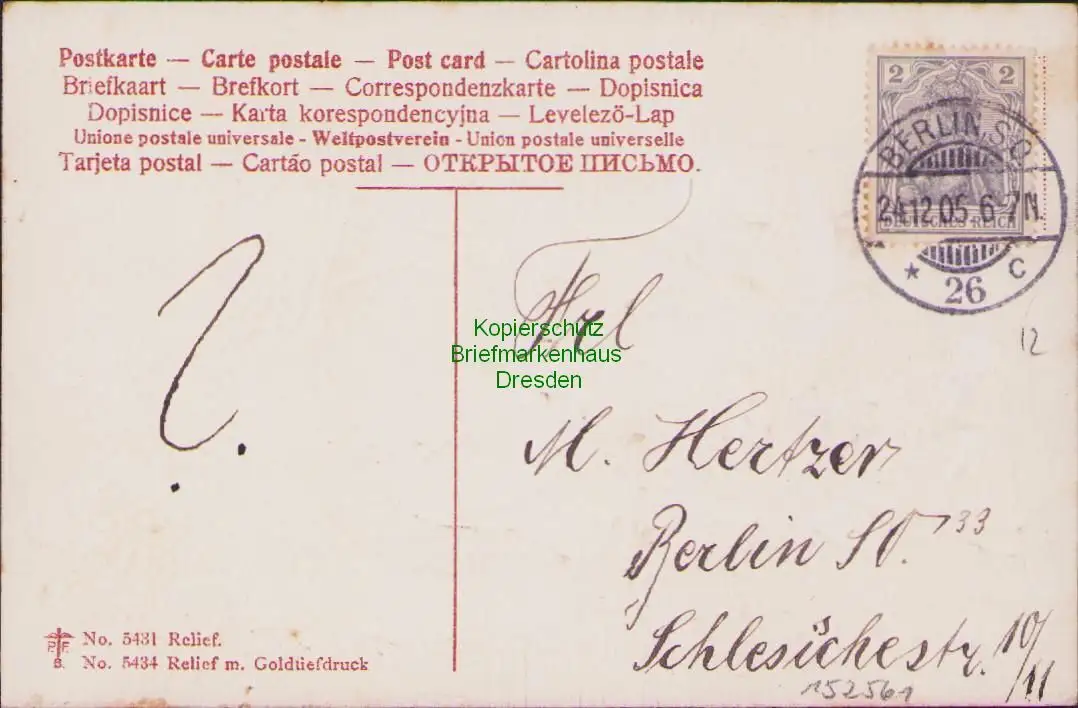 Postkarte — Carte postale — Post card — Cartolina postale
Briefkaart — Brefkort — Correspondenzkarte — Dopisnica
Dopisnice — Karta korespondencyjna — Levelező-Lap
Unione postale universale - Weltpostverein - Union postale universelle
Tarjeta postal — Cartão postal — ОТКРЫТОЕ ПИСЬМО.
2 2
DEUTSCHES REICH
BERLIN S.O.
24.12.05. 6-7 N.
* 26 c
12
?
Frl
Kopierschutz
Briefmarkenhaus
Dresden
M. Hertzer
Berlin SO. 33
Schlesischestr. 10/11
152561
P.F.B.
No. 5431 Relief.
No. 5434 Relief m. Goldtiefdruck